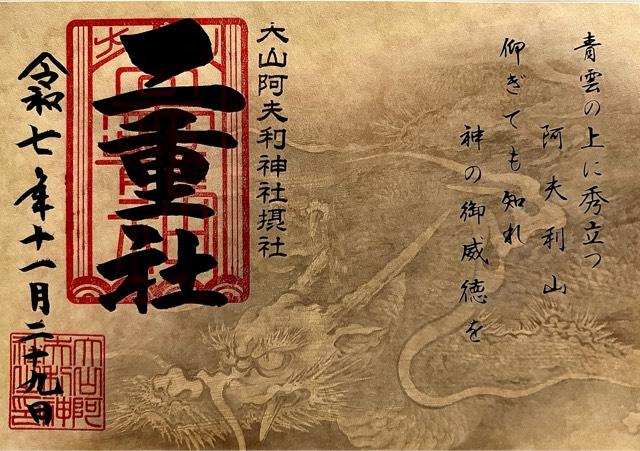 青雲の上に秀立つ
阿夫利山
仰ぎても知れ
神の御威徳を
大山阿夫利神社摂社
二重社
令和七年十一月二十九日